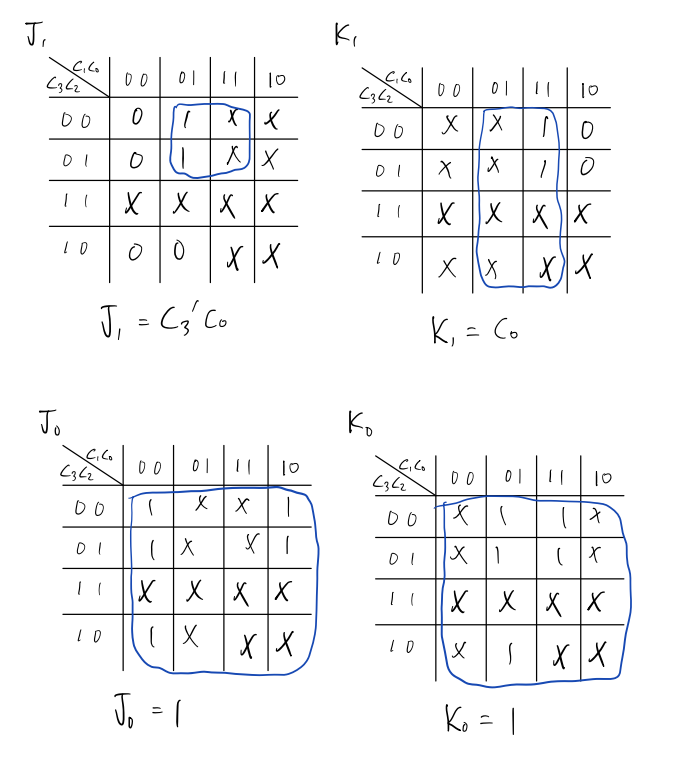 J₁
C₁C₀
C₃C₂
00 01 11 10
00 0 1 X X
01 0 1 X X
11 X X X X
10 0 0 X X
J₁ = C₃'C₀
K₁
C₁C₀
C₃C₂
00 01 11 10
00 X X 1 0
01 X X 1 0
11 X X X X
10 X X X X
K₁ = C₀
J₀
C₁C₀
C₃C₂
00 01 11 10
00 1 X X 1
01 1 X X 1
11 X X X X
10 1 X X X
J₀ = 1
K₀
C₁C₀
C₃C₂
00 01 11 10
00 X 1 1 X
01 X 1 1 X
11 X X X X
10 X 1 X X
K₀ = 1